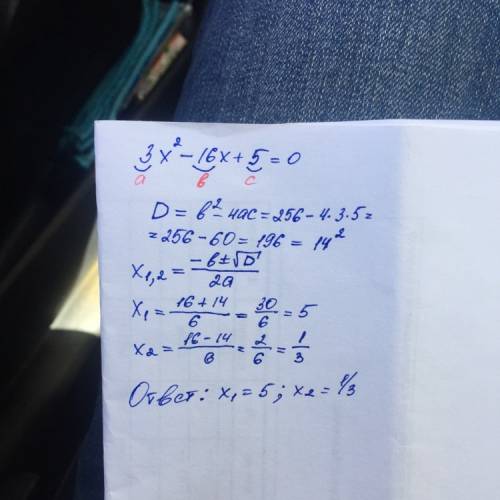 3x² - 16x + 5 = 0
a в c
D = в² - 4ac = 256 - 4·3·5 =
= 256 - 60 = 196 = 14²
x₁,₂ = (-в ± √D)/2a
x₁ = (16 + 14)/6 = 30/6 = 5
x₂ = (16 - 14)/6 = 2/6 = 1/3
Ответ: x₁ = 5; x₂ = 1/3